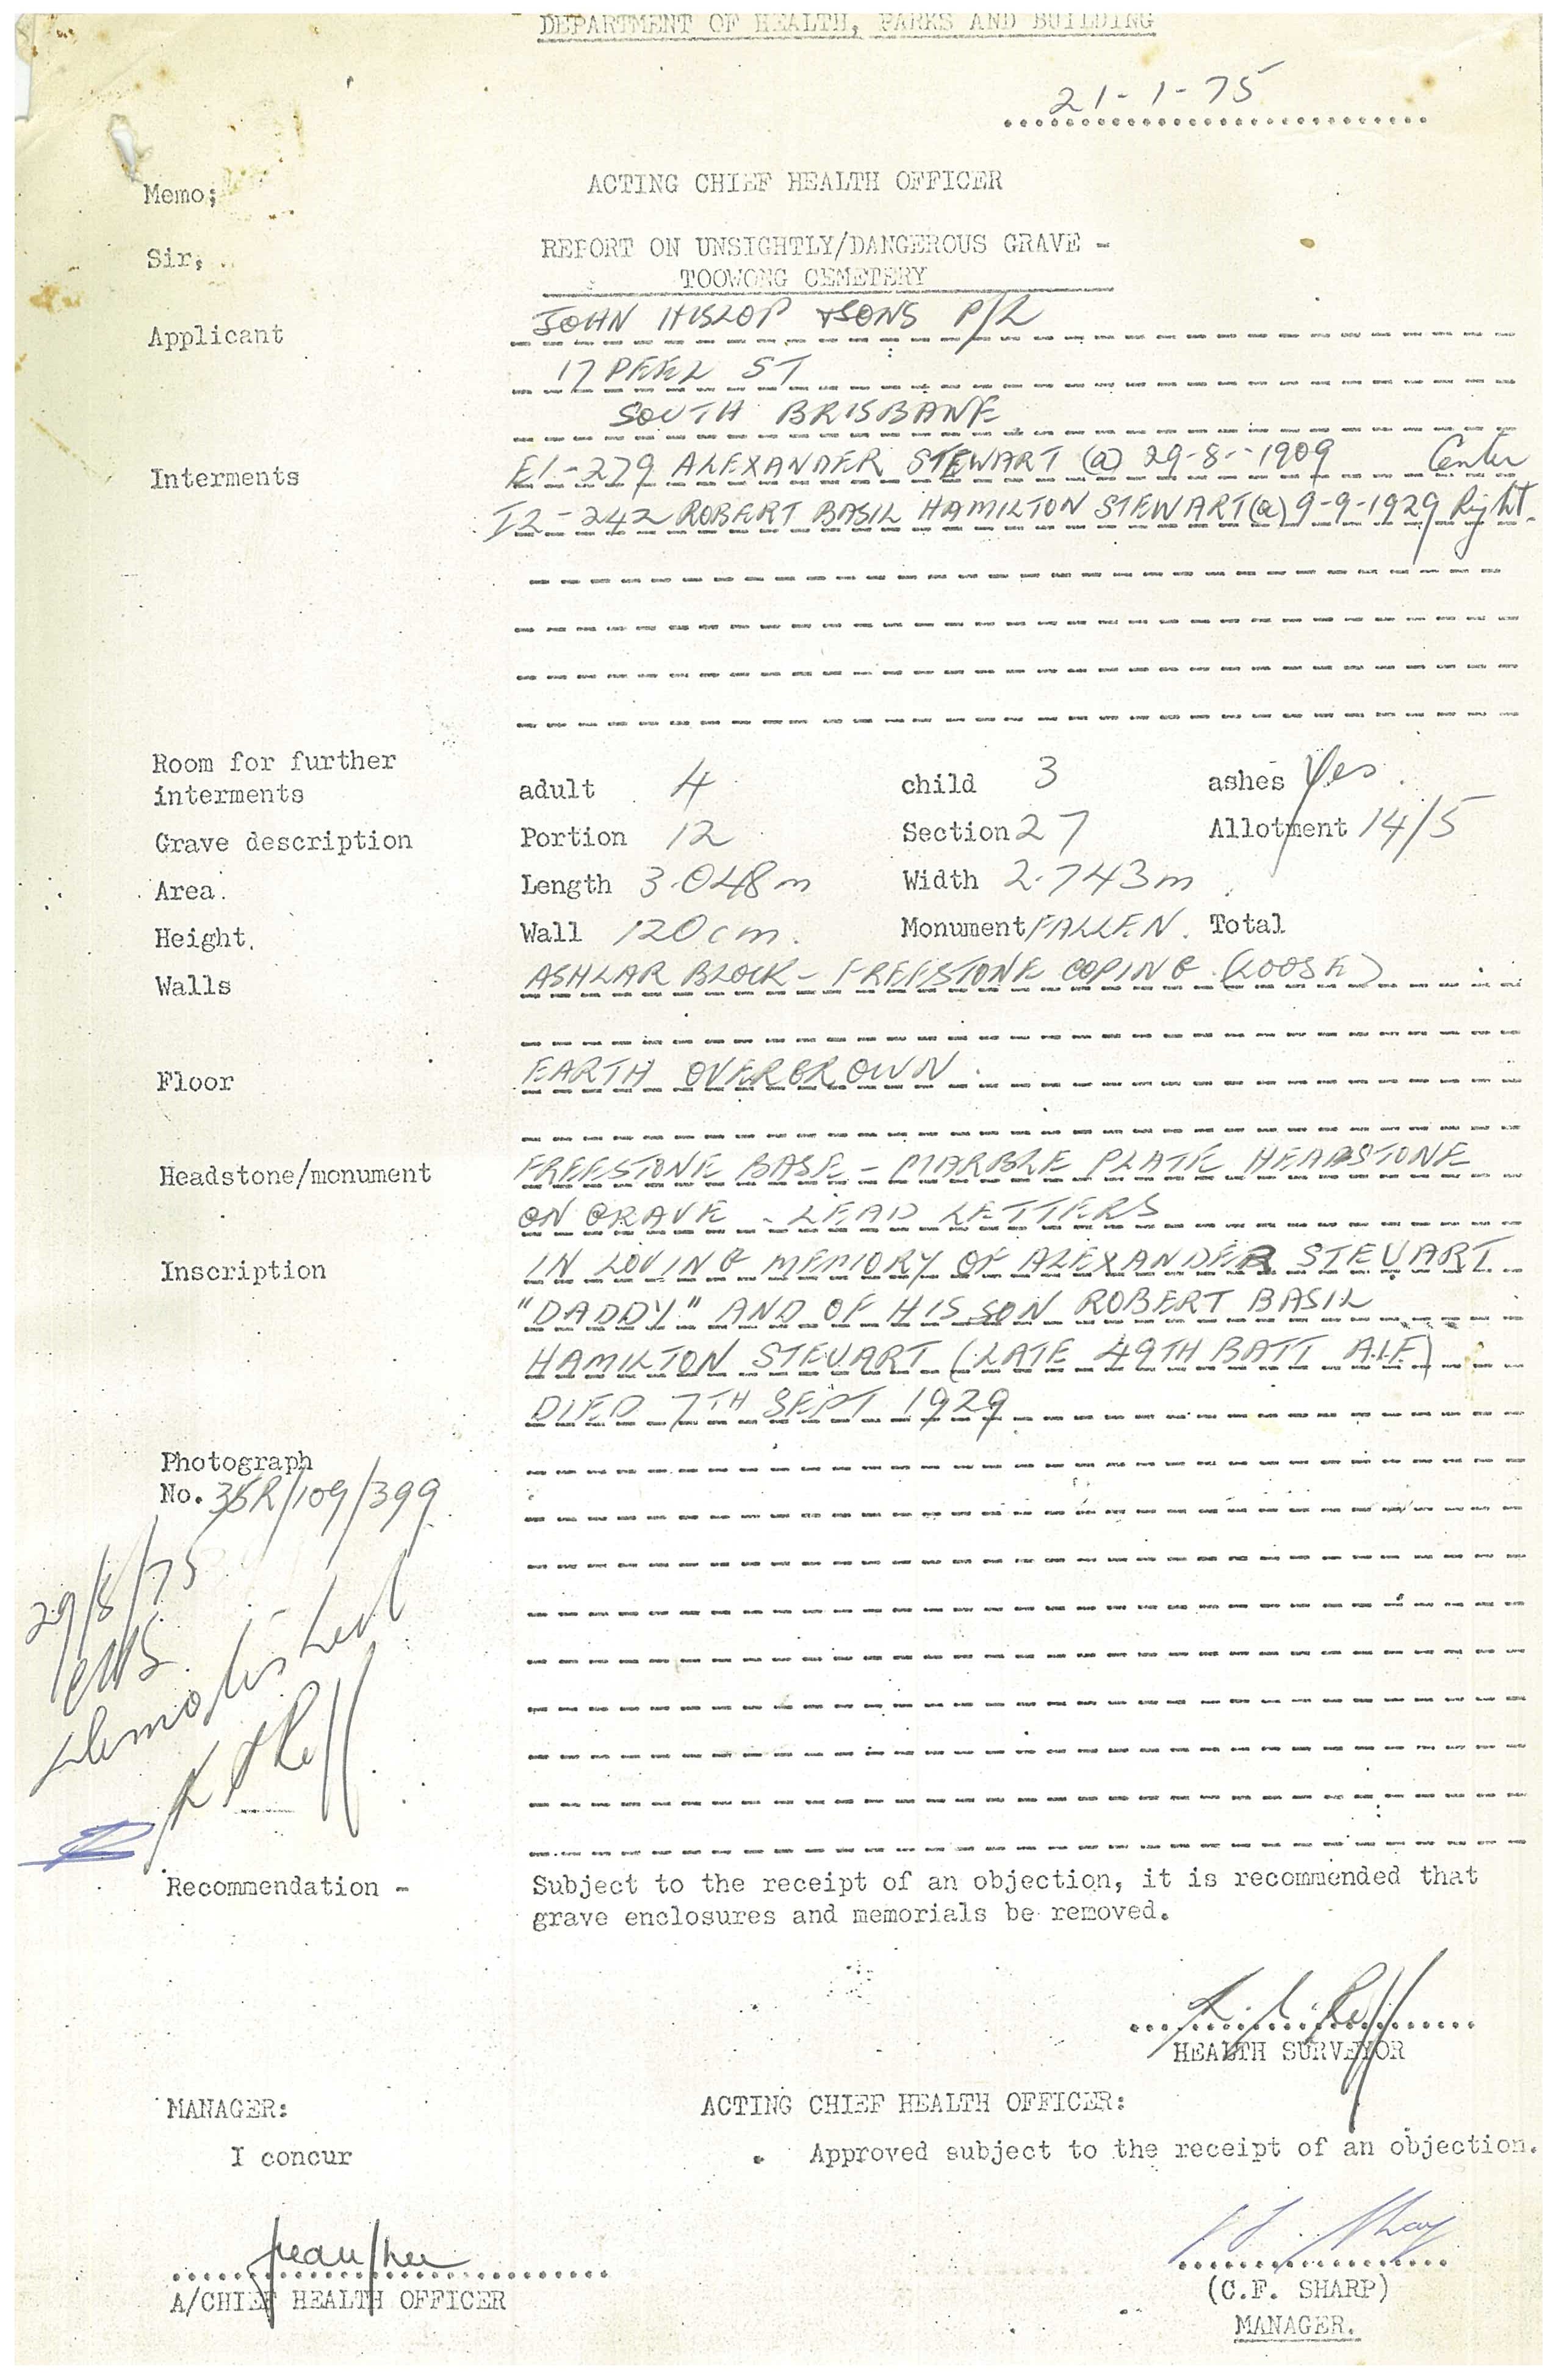 DEPARTMENT OF HEALTH, PARKS AND BUILDING
21-1-75
Memo; ACTING CHIEF HEALTH OFFICER
Sir, REPORT ON UNSIGHTLY/DANGEROUS GRAVE -
TOOWONG CEMETERY
Applicant JOHN HISLOP & SONS P/L
17 PEEL ST
SOUTH BRISBANE
Interments E1-279 ALEXANDER STEWART (a) 29-8-1909 Center
I2-242 ROBERT BASIL HAMILTON STEWART (a) 9-9-1929 Right.
Room for further
interments adult 4 child 3 ashes Yes.
Grave description Portion 12 Section 27 Allotment 14/5
Area. Length 3.048m Width 2.743m
Height. Wall 120cm. Monument FALLEN. Total
Walls ASHLAR BLOCK - FREESTONE COPING (LOOSE)
Floor EARTH OVERGROWN.
Headstone/monument FREESTONE BASE - MARBLE PLATE HEADSTONE
ON GRAVE - LEAD LETTERS
Inscription IN LOVING MEMORY OF ALEXANDER STEUART
"DADDY" AND OF HIS SON ROBERT BASIL
HAMILTON STEUART (LATE 49TH BATT A.I.F.)
DIED 7TH SEPT 1929
Photograph
No. 35R/109/399
29/8/75
demolished
Recommendation - Subject to the receipt of an objection, it is recommended that
grave enclosures and memorials be removed.
HEALTH SURVEYOR
MANAGER: ACTING CHIEF HEALTH OFFICER:
I concur . Approved subject to the receipt of an objection.
A/CHIEF HEALTH OFFICER (C.F. SHARP)
MANAGER.